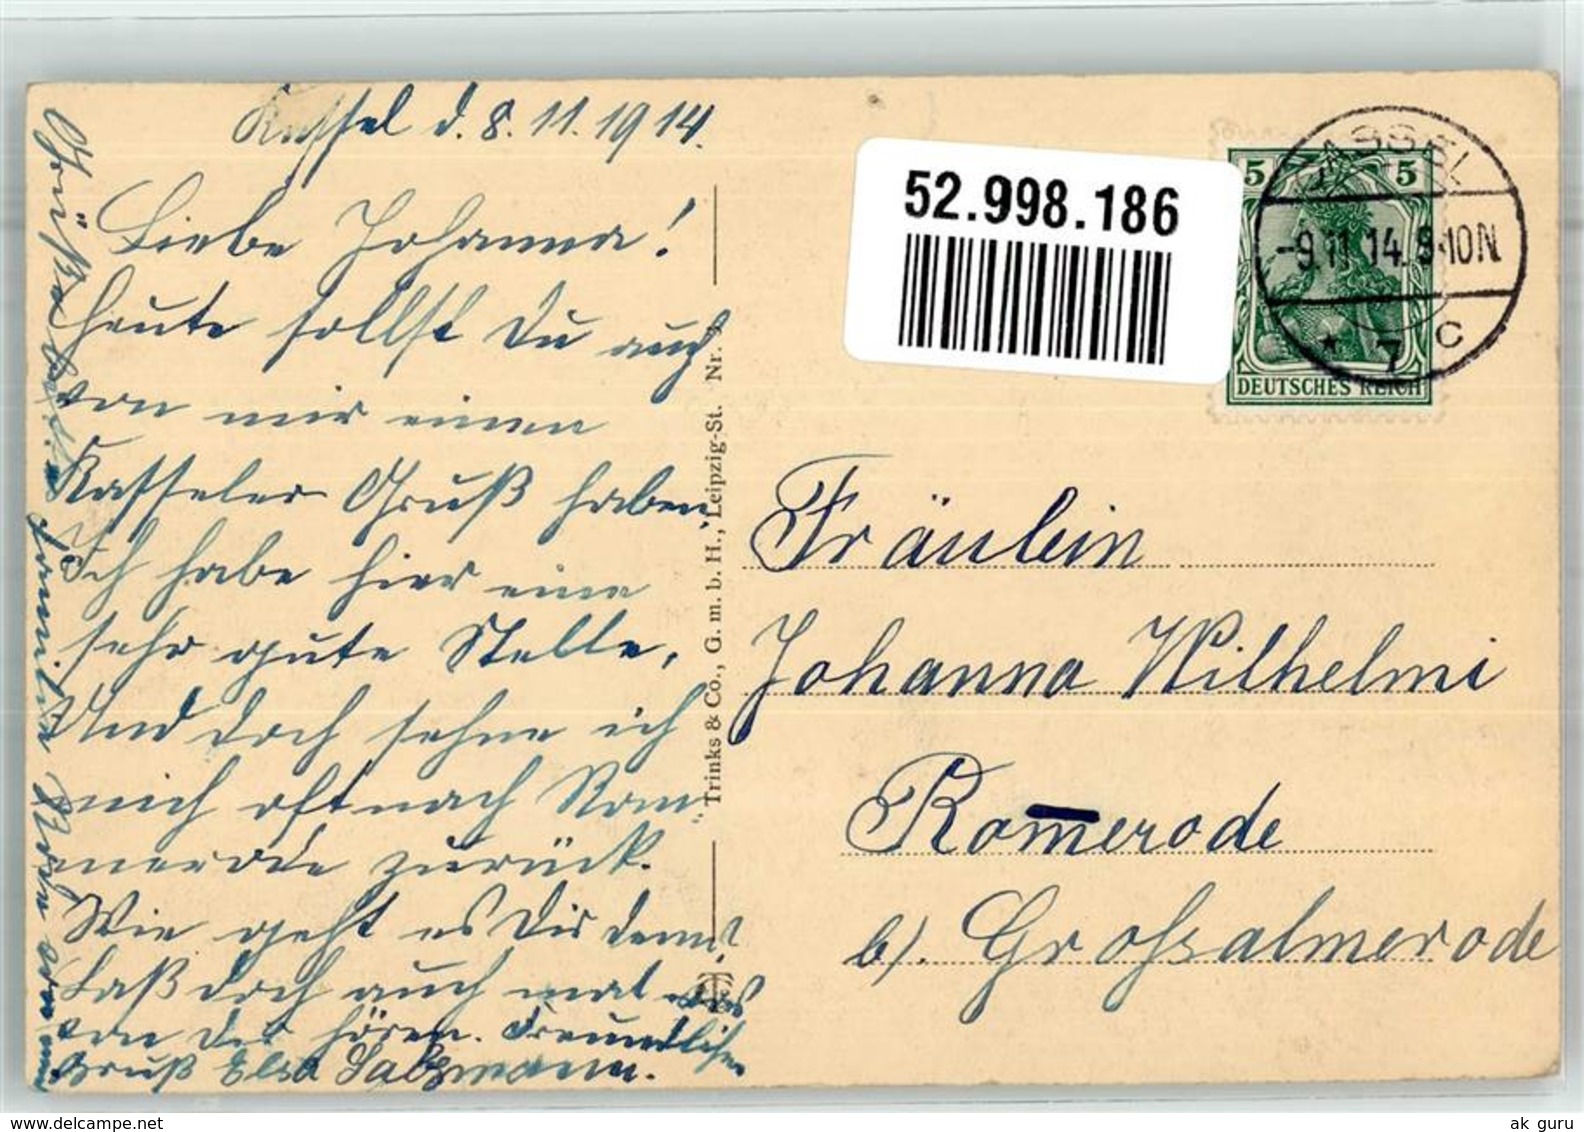 Kassel d. 8.11.1914.
Liebe Johanna!
Heute sollst Du auch
von mir einen
Kasseler Gruß haben,
Ich habe hier eine
sehr gute Stelle,
Und doch sehne ich
mich oft nach Rom-
merode zurück.
Wie geht es Dir denn?
Laß doch auch mal was
von dir hören. Freundlichen
Gruß Elsa Salzmann.
Grüße bitte
Familie von mir
Trinks & Co., G. m. b. H., Leipzig-St. Nr. 9
52.998.186
5 5
DEUTSCHES REICH
CASSEL
-9.11.14.9-10N
* 7 C
Fräulein
Johanna Wilhelmi
Romerode
b/. Großalmerode
ak guru